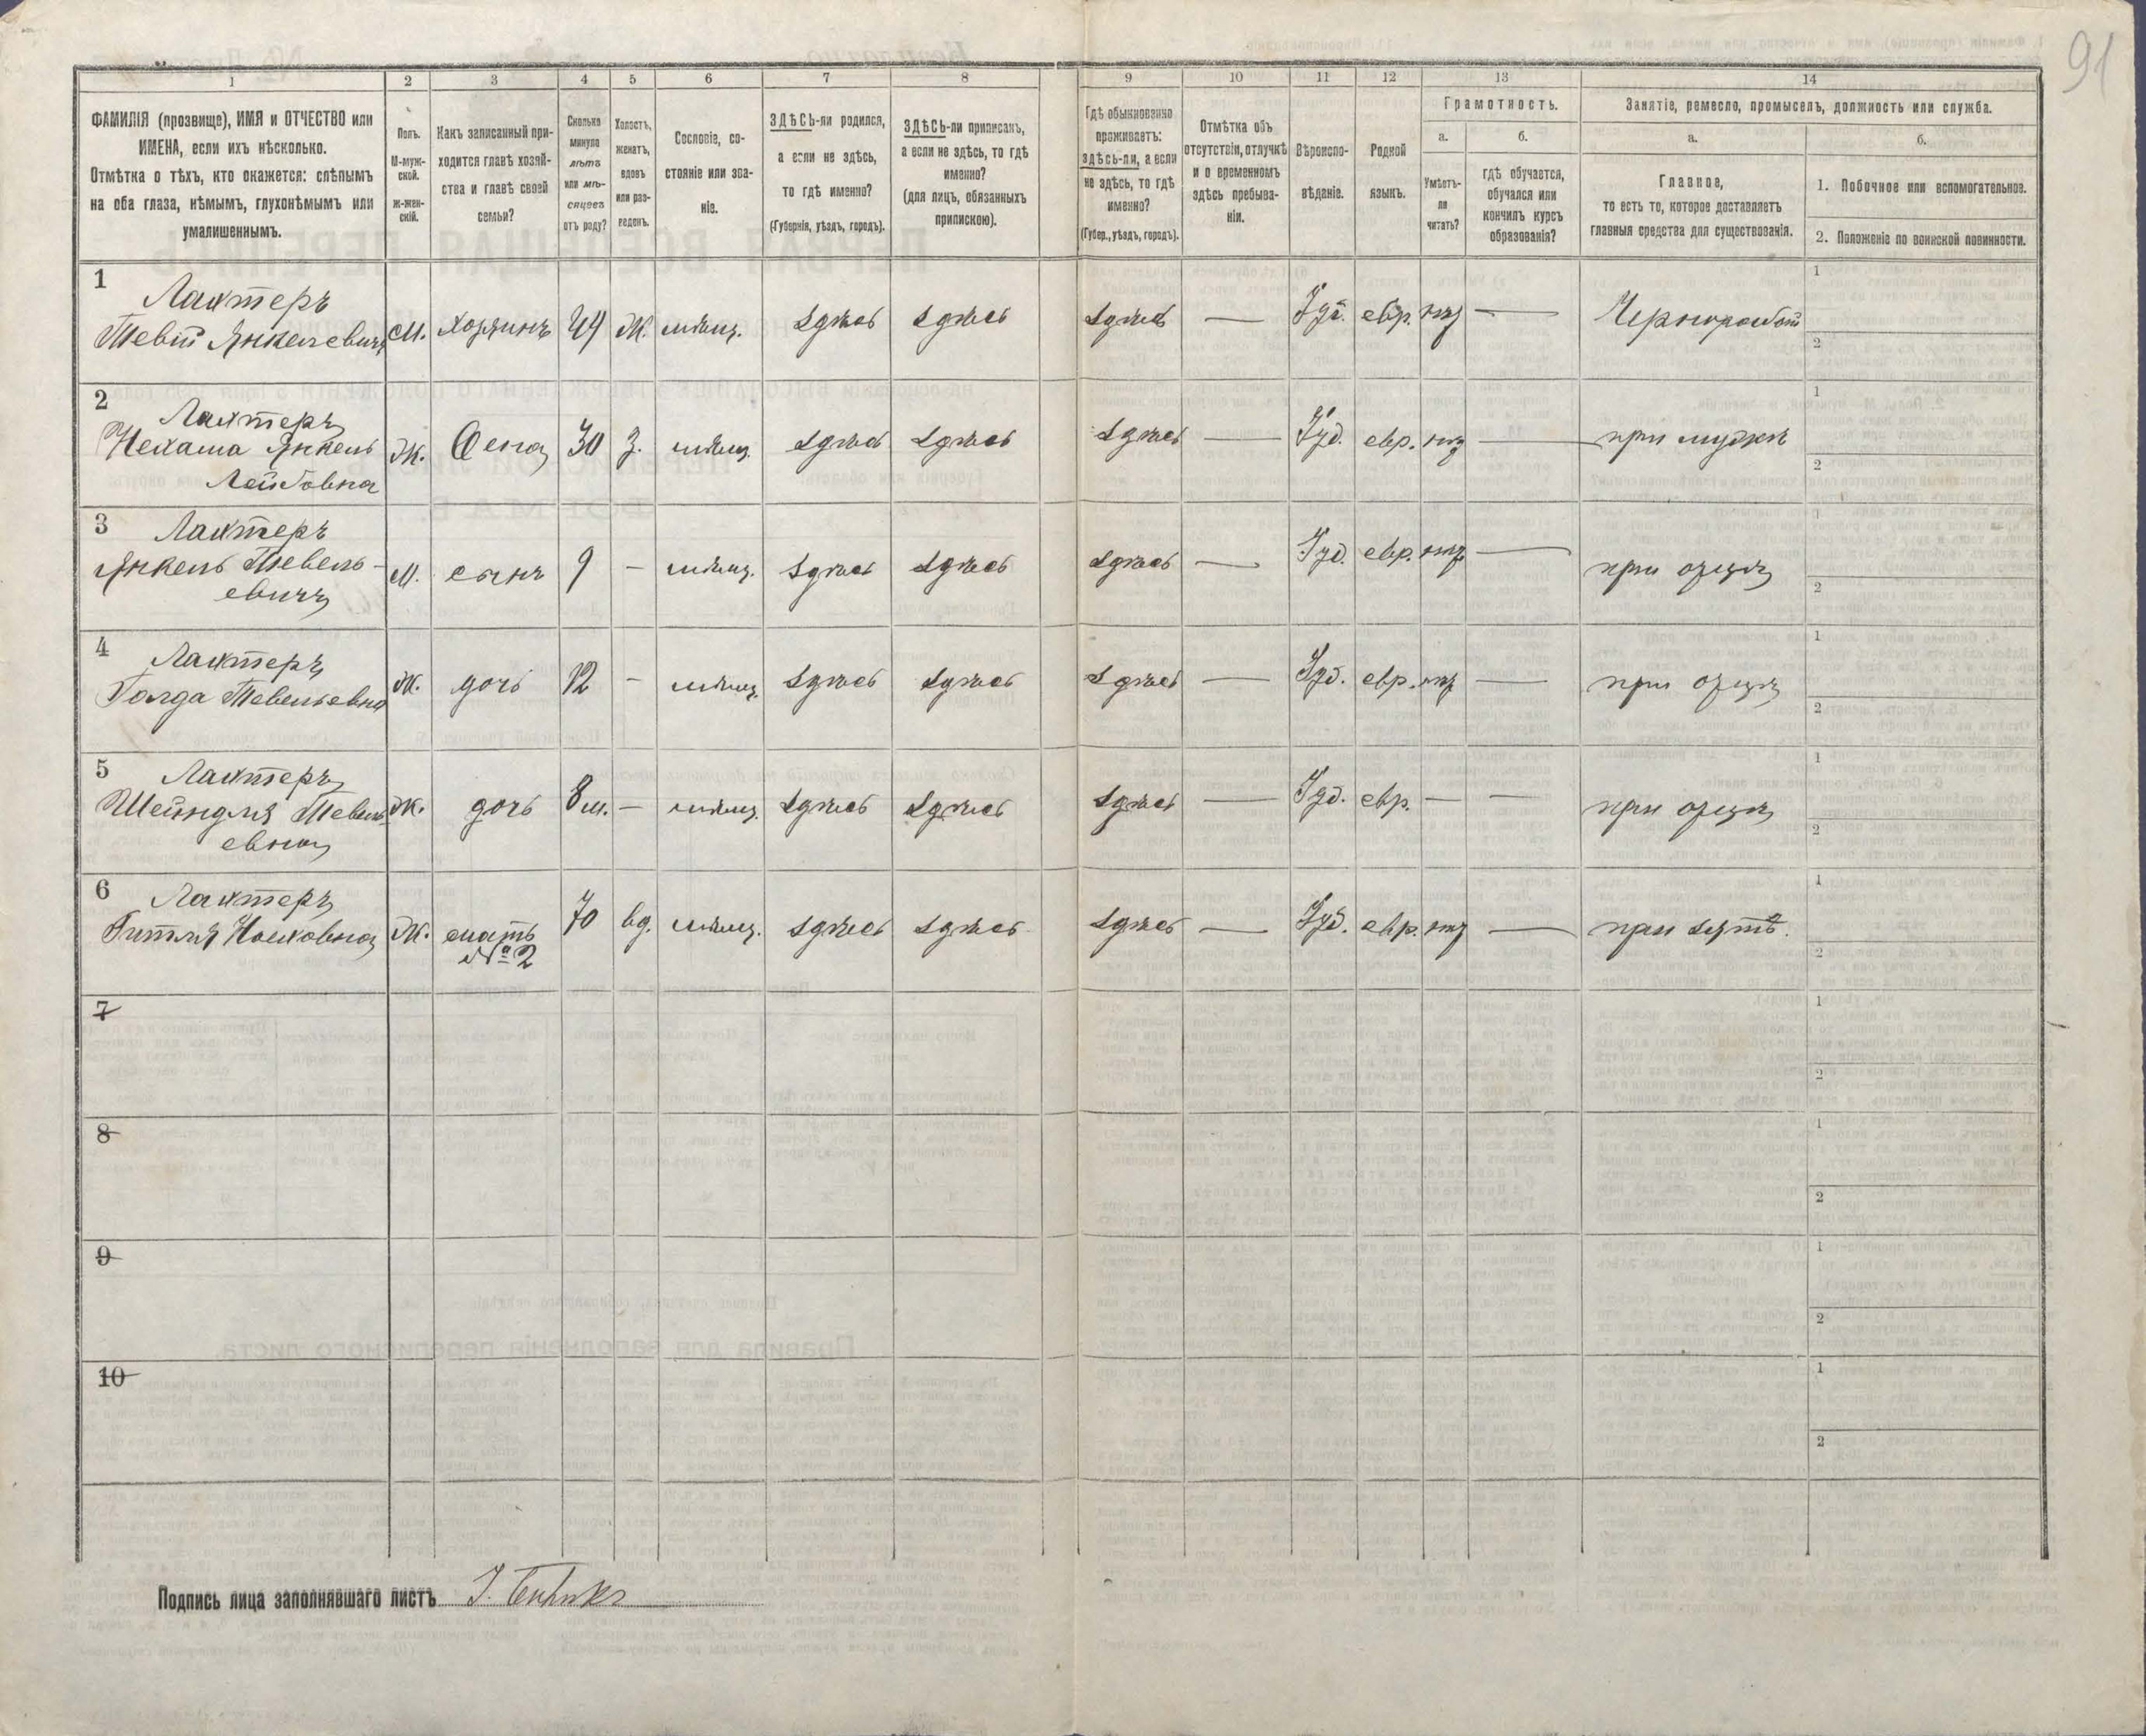 91
1
ФАМИЛІЯ (прозвище), ИМЯ и ОТЧЕСТВО или
ИМЕНА, если ихъ нѣсколько.
Отмѣтка о тѣхъ, кто окажется: слѣпымъ
на оба глаза, нѣмымъ, глухонѣмымъ или
умалишеннымъ.
2
Полъ.
М-муж-
ской.
ж-жен-
скій.
3
Какъ записанный при-
ходится главѣ хозяй-
ства и главѣ своей
семьи?
4
Сколько
минуло
лѣтъ
или мѣ-
сяцевъ
отъ роду?
5
Холостъ,
женатъ,
вдовъ
или раз-
веденъ.
6
Сословіе, со-
стояніе или зва-
ніе.
7
ЗДѢСЬ-ли родился,
а если не здѣсь,
то гдѣ именно?
(Губернія, уѣздъ, городъ).
8
ЗДѢСЬ-ли приписанъ,
а если не здѣсь, то гдѣ
именно?
(для лицъ, обязанныхъ
припискою).
9
Гдѣ обыкновенно
проживаетъ:
здѣсь-ли, а если
не здѣсь, то гдѣ
именно?
(Губер., уѣздъ, городъ).
10
Отмѣтка объ
отсутствіи, отлучкѣ
и о временномъ
здѣсь пребыва-
ніи.
11
Вѣроиспо-
вѣданіе.
12
Родной
языкъ.
13
Грамотность.
а.
Умѣетъ-
ли
читать?
б.
гдѣ обучается,
обучался или
кончилъ курсъ
образованія?
14
Занятіе, ремесло, промыселъ, должность или служба.
а.
Главное,
то есть то, которое доставляетъ
главныя средства для существованія.
б.
1. Побочное или вспомогательное.
2. Положеніе по воинской повинности.
1
Лахтеръ
Тевій Янкелевичъ М. хозяинъ 44 Ж. мѣщ. здѣсь здѣсь здѣсь — Іуд. евр. нѣт — Чернорабоч
1
2
2
Лахтеръ
Нехама Янкель
Лейбовна Ж. жена 30 з. мѣщ. здѣсь здѣсь здѣсь — Іуд. евр. нѣт — при мужѣ
1
2
3
Лахтеръ
Янкель Тевель-
евичъ М. сынъ 9 — мѣщ. здѣсь здѣсь здѣсь — Іуд. евр. нѣт — при отцѣ
1
2
4
Лахтеръ
Голда Тевельевна Ж. дочь 12 — мѣщ. здѣсь здѣсь здѣсь — Іуд. евр. нѣт — при отцѣ
1
2
5
Лахтеръ
Шейндля Тевель
евна Ж. дочь 8 м. — мѣщ. здѣсь здѣсь здѣсь — Іуд. евр. — — при отцѣ
1
2
6
Лахтеръ
Гитля Ж. мать
№ 2 70 вд. мѣщ. здѣсь здѣсь здѣсь — Іуд. евр. нѣт — при зятѣ.
1
2
7
1
2
8
1
2
9
1
2
10
1
2
Подпись лица заполнявшаго листъ